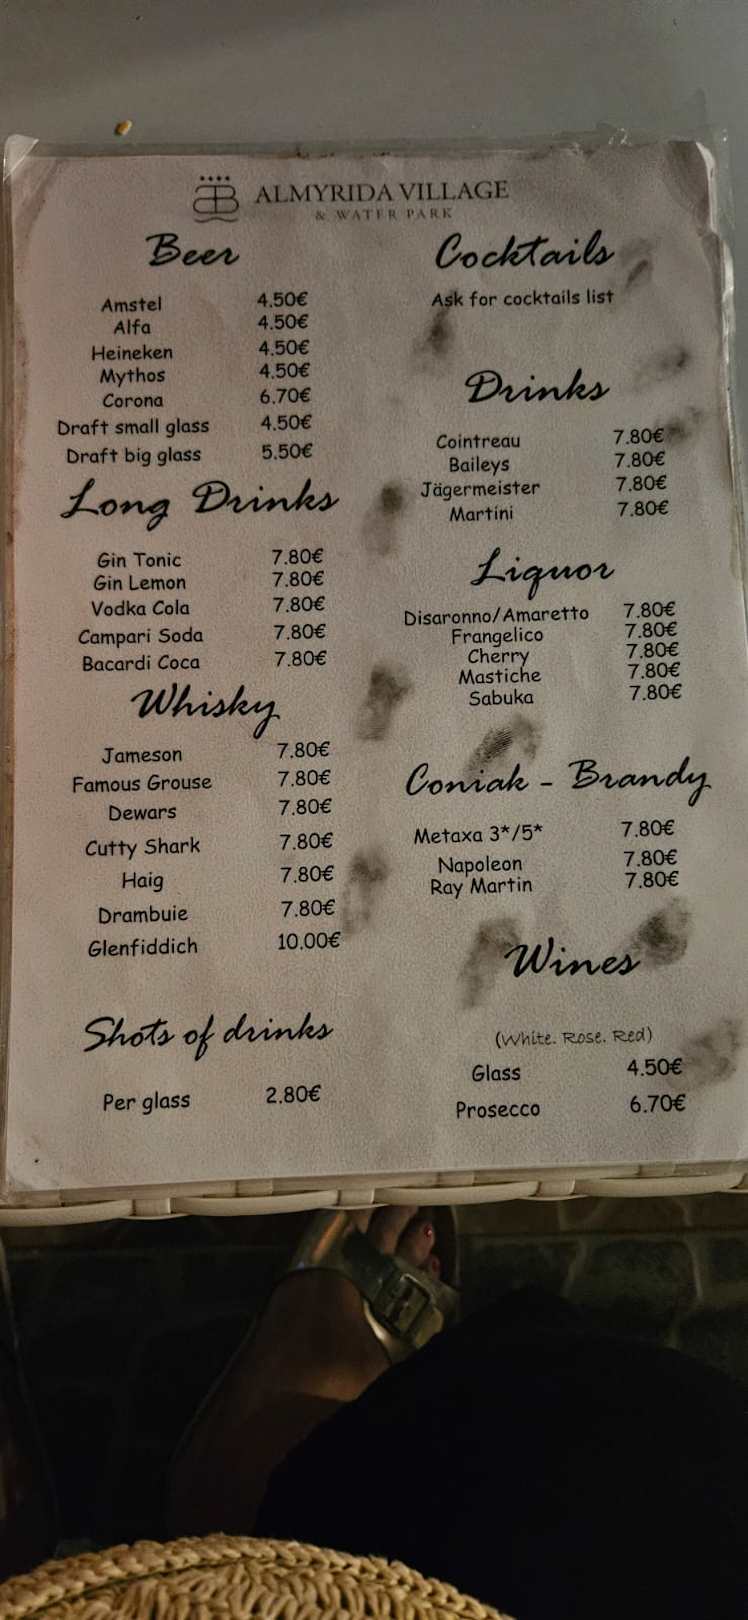 ALMYRIDA VILLAGE
& WATER PARK
Beer
Amstel 4.50€
Alfa 4.50€
Heineken 4.50€
Mythos 4.50€
Corona 6.70€
Draft small glass 4.50€
Draft big glass 5.50€
Long Drinks
Gin Tonic 7.80€
Gin Lemon 7.80€
Vodka Cola 7.80€
Campari Soda 7.80€
Bacardi Coca 7.80€
Whisky
Jameson 7.80€
Famous Grouse 7.80€
Dewars 7.80€
Cutty Shark 7.80€
Haig 7.80€
Drambuie 7.80€
Glenfiddich 10.00€
Shots of drinks
Per glass 2.80€
Cocktails
Ask for cocktails list
Drinks
Cointreau 7.80€
Baileys 7.80€
Jägermeister 7.80€
Martini 7.80€
Liquor
Disaronno/Amaretto 7.80€
Frangelico 7.80€
Cherry 7.80€
Mastiche 7.80€
Sabuka 7.80€
Coniak - Brandy
Metaxa 3*/5* 7.80€
Napoleon 7.80€
Ray Martin 7.80€
Wines
(White. Rose. Red)
Glass 4.50€
Prosecco 6.70€